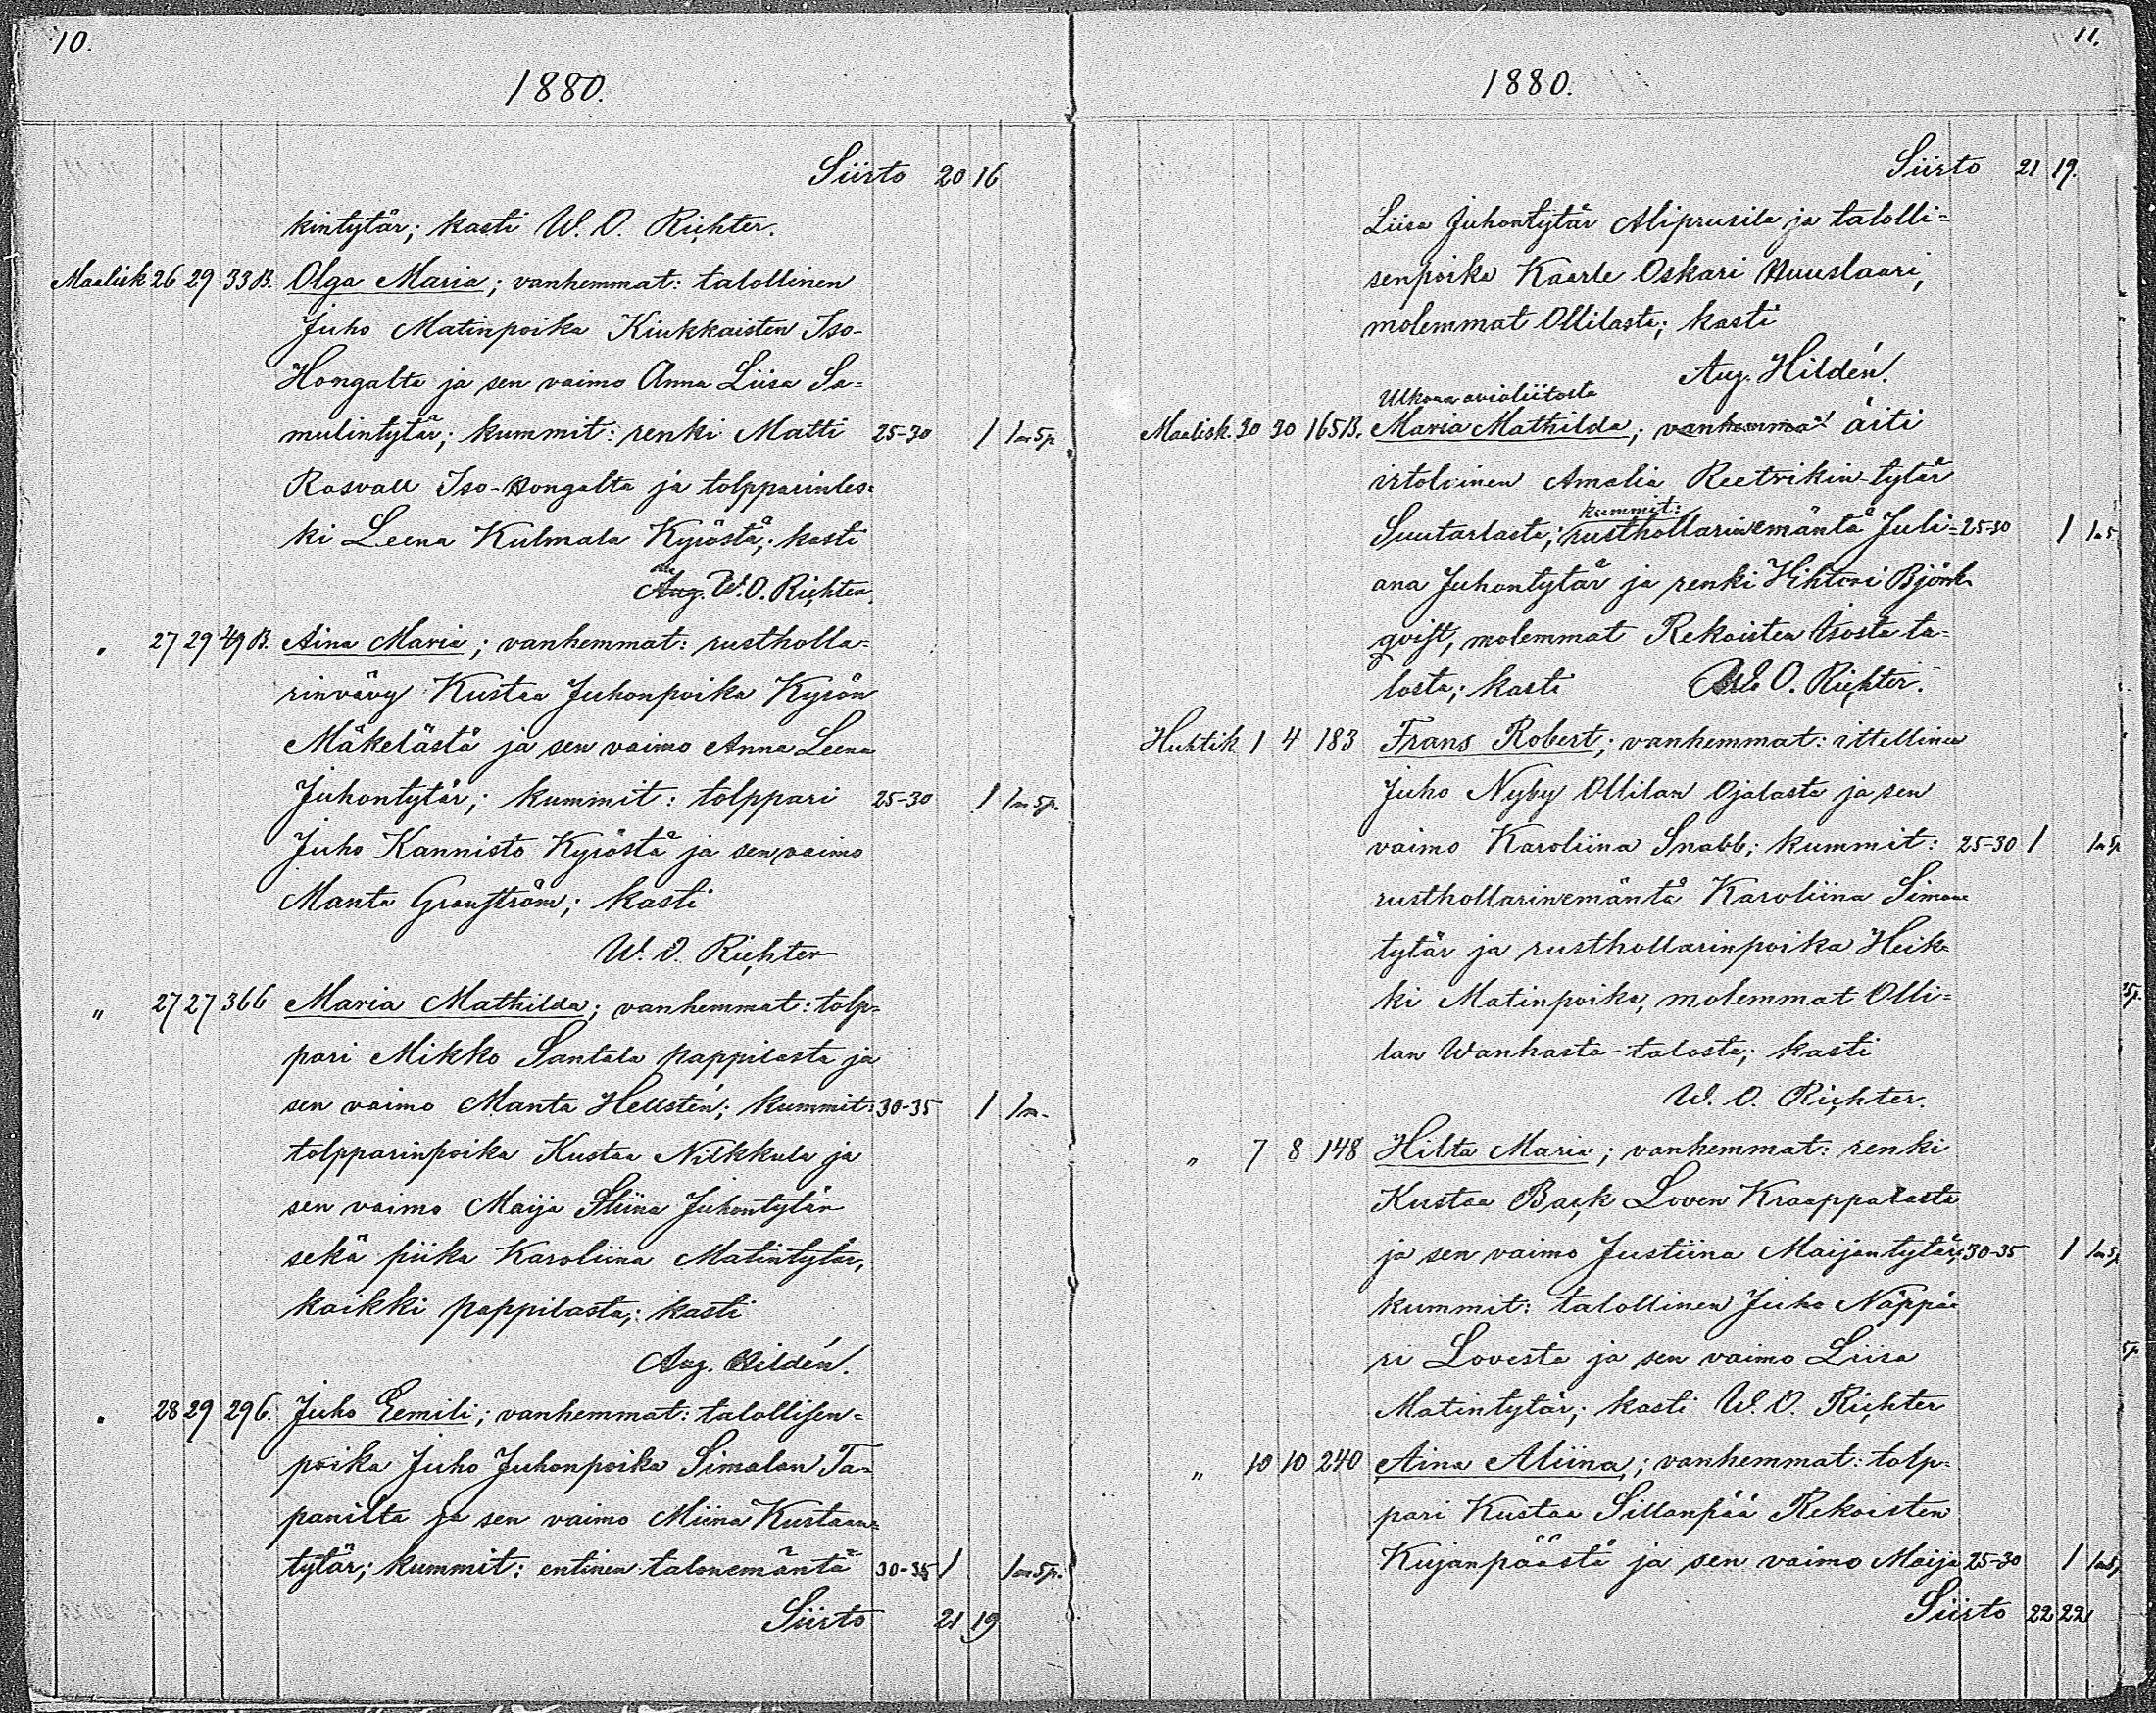 10.
1880.
Siirto 20 16
kintytär; kasti W. O. Richter.
Maalisk 26 29 33 B. Olga Maria; vanhemmat: talollinen
Juho Matinpoika Kiukkaisten Iso-
Hongalta ja sen vaimo Anna Liisa Sa=
mulintytär; kummit: renki Matti 25-30 1 1m 5p
Rosvall Iso-Hongalta ja tolpparinles=
ki Leena Kulmala Kyröstä; kasti
Aug. W. O. Richter.
" 27 29 49 B. Aina Maria; vanhemmat: rustholla=
rinvävy Kustaa Juhonpoika Kyrön
Mäkelästä ja sen vaimo Anna Leena
Juhontytär; kummit: tolppari 25-30 1 1m 5p.
Juho Kannisto Kyröstä ja sen vaimo
Manta Granström; kasti
W. O. Richter
" 27 27 366 Maria Mathilda; vanhemmat: tolp=
pari Mikko Santala pappilasta ja
sen vaimo Manta Hellstén; kummit: 30-35 1 1m.
tolpparinpoika Kustaa Nilkkula ja
sen vaimo Maija Stiina Juhontytär
sekä piika Karoliina Matintytär,
kaikki pappilasta; kasti
Aug. Hildén.
" 28 29 296. Juho Eemili; vanhemmat: talollisen=
poika Juho Juhonpoika Simolan Ta=
panilta ja sen vaimo Miina Kustaan=
tytär; kummit: entinen talonemäntä 30-35 1 1m 5p.
Siirto 21 19
11.
1880.
Siirto 21 19.
Liisa Juhontytär Aliprusila ja talolli=
senpoika Kaarle Oskari Huuslaari,
molemmat Ollilasta; kasti
Aug. Hildén.
Ulkona avioliitosta
Maalisk. 30 30 165 B. Maria Mathilda; vanhemmat äiti
irtolainen Amalia Reetrikin-tytär
kummit:
Suutarlasta; rusthollarinemäntä Juli= 25-30 1 1m 5
ana Juhontytär ja renki Vihtori Björk=
qvist, molemmat Rekoisten Isosta ta=
losta; kasti W. O. Richter.
Huhtik 1 4 183 Frans Robert; vanhemmat: ittellinen
Juho Nyby Ollilan Ojalasta ja sen
vaimo Karoliina Snabb; kummit: 25-30 1 1m 5p
rusthollarinemäntä Karoliina Simon
tytär ja rusthollarinpoika Heik=
ki Matinpoika, molemmat Olli=
lan Wanhasta-talosta; kasti
W. O. Richter.
" 7 8 148 Hilta Maria; vanhemmat: renki
Kustaa Back Loven Kraappalasta
ja sen vaimo Justiina Maijantytär; 30-35 1 1m 5p
kummit: talollinen Juho Näppä=
ri Lovesta ja sen vaimo Liisa
Matintytär; kasti W. O. Richter
" 10 10 240 Aina Aliina; vanhemmat: tolp=
pari Kustaa Sillanpää Rekoisten
Kujanpäästä ja sen vaimo Maija 25-30 1 1m 5
Siirto 22 22